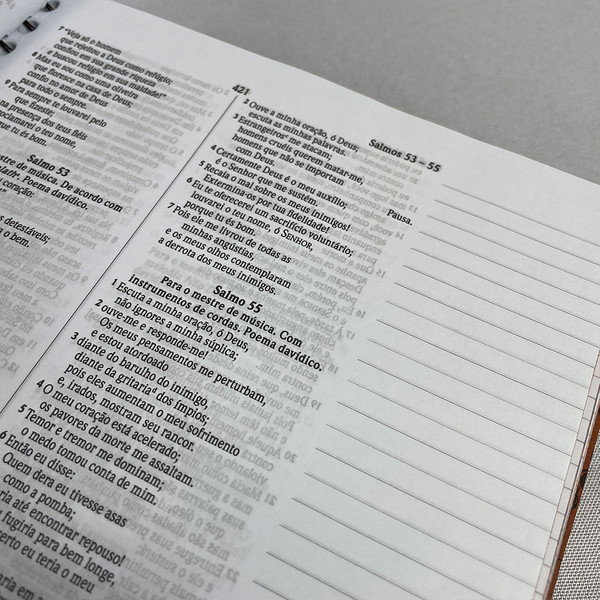 7 "Veja só o homem
que rejeitou a Deus como refúgio;
confiou em sua grande riqueza
e buscou refúgio em sua maldade!"
8 Mas eu sou como uma oliveira
que floresce na casa de Deus;
confio no amor de Deus
para todo o sempre.
9 Para sempre te louvarei pelo
que fizeste;
na presença dos teus fiéis
proclamarei o teu nome,
que tu és bom.
Salmo 53
mestre de música. De acordo com
Poema davídico.
coração:
detestáveis;
o bem.
421
Salmos 53 – 55
2 Ouve a minha oração, ó Deus;
escuta as minhas palavras.
3 Estrangeiros me atacam;
homens cruéis querem matar-me,
homens que não se importam
com Deus.
Pausa.
4 Certamente Deus é o meu auxílio;
é o Senhor que me sustém.
5 Recaia o mal sobre os meus inimigos!
Extermina-os por tua fidelidade!
6 Eu te oferecerei um sacrifício voluntário;
louvarei o teu nome, ó SENHOR,
porque tu és bom.
7 Pois ele me livrou de todas as
minhas angústias
e os meus olhos contemplaram
a derrota dos meus inimigos.
Salmo 55
Para o mestre de música. Com
instrumentos de cordas. Poema davídico.
1 Escuta a minha oração, ó Deus,
não ignores a minha súplica;
2 ouve-me e responde-me!
Os meus pensamentos me perturbam,
e estou atordoado
3 diante do barulho do inimigo,
diante da gritaria dos ímpios;
pois eles aumentam o meu sofrimento
e, irados, mostram seu rancor.
4 O meu coração está acelerado;
os pavores da morte me assaltam.
5 Temor e tremor me dominam;
o medo tomou conta de mim.
6 Então eu disse:
Quem dera eu tivesse asas
como a pomba;
até encontrar repouso!
fugiria para bem longe,
eu teria o meu